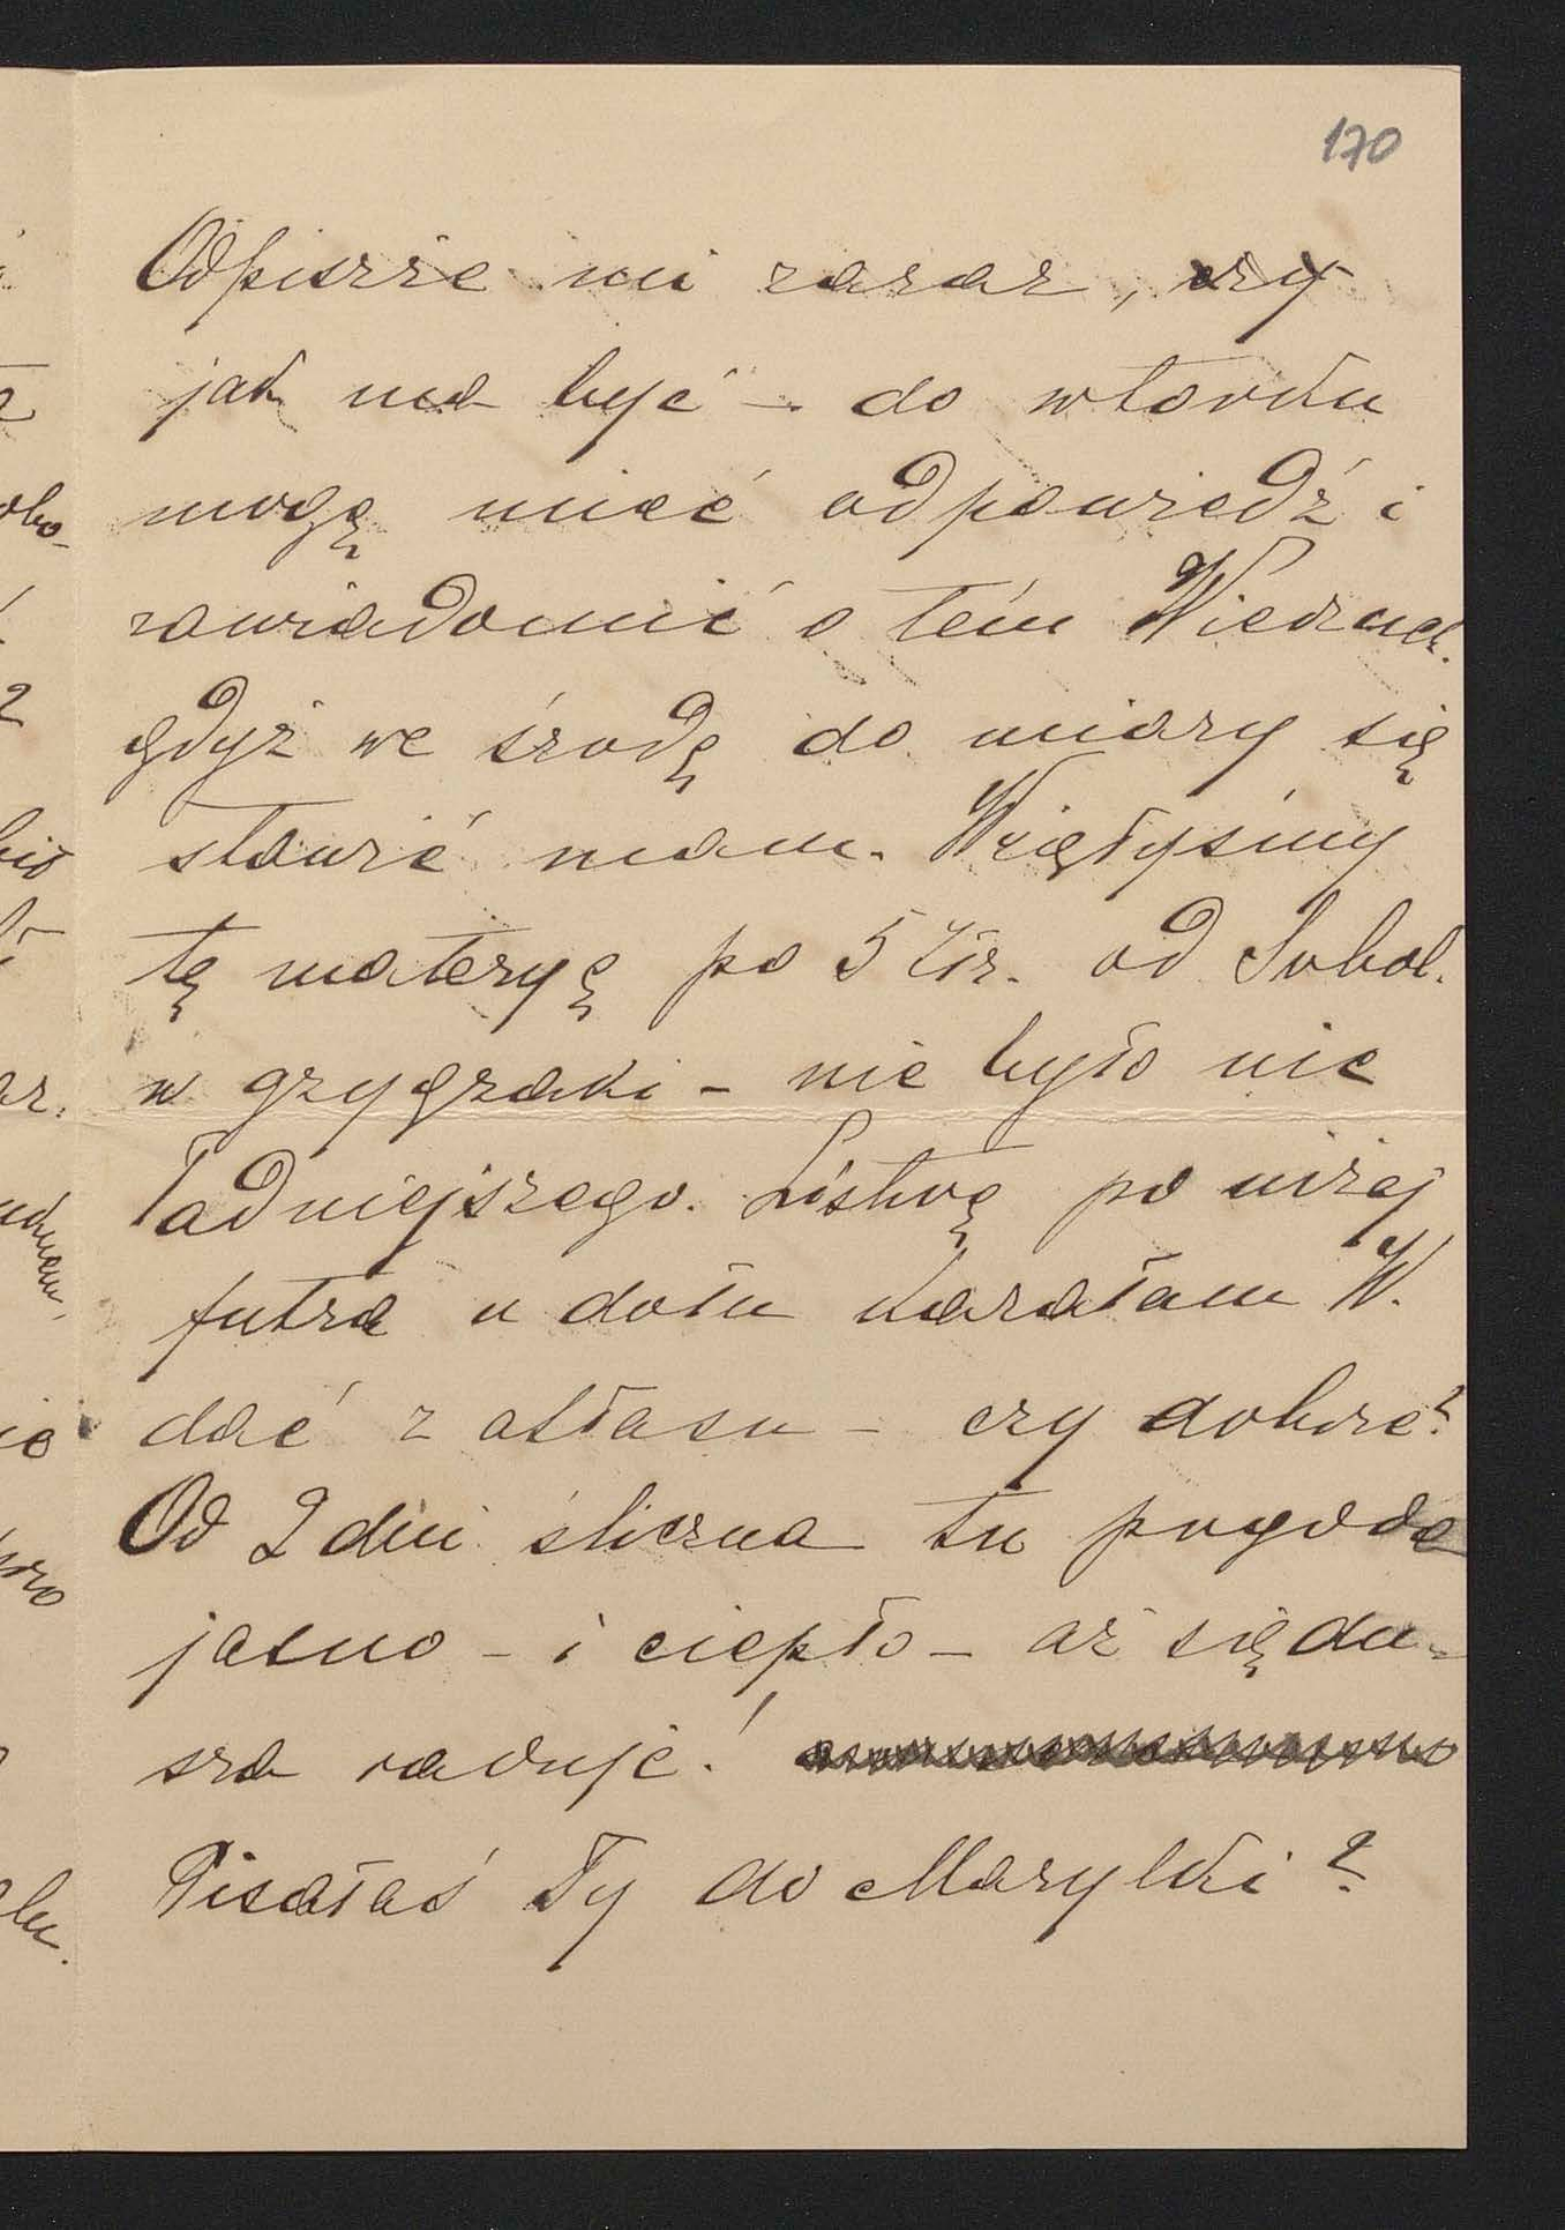 170
Odpiszże mi zaraz, czy
jak ma być – do wtorku
mogę mieć odpowiedź i
zawiadomić o tém
gdyż we środę do miary się
stawić mam. Wzięłyśmy
tę materyę po 5 złr. od Sobol.
w grzygzaki – nie było nic
ładniejszego. Listwę po niżej
futra u dołu kazałam W.
dać z atłasu – czy dobrze?
Od 2 dni śliczna tu pogoda
jasno – i ciepło – aż się du-
sza raduje!
Pisałaś Ty do Marylki?